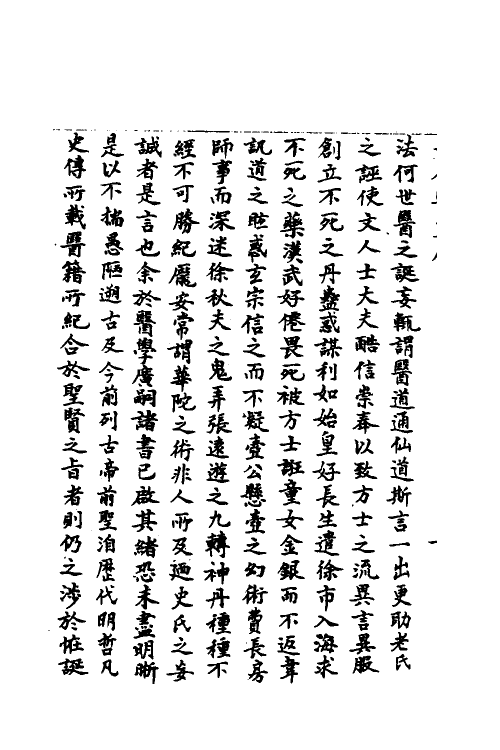 法何世醫之誕妄輒謂醫道通仙道斯言一出更助老氏
之誣使文人士大夫酷信崇奉以致方士之流異言異服
創立不死之丹蠱惑謀利如始皇好長生遣徐市入海求
不死之藥漢武好僊畏死被方士誑童女金銀而不返韋
訊道之眩惑玄宗信之而不疑壺公懸壺之幻術費長房
師事而深迷徐秋夫之鬼弄張遠遊之九轉神丹種種不
經不可勝紀龐安常謂華陀之術非人所及廼史氏之妄
誠者是言也余於醫學廣嗣諸書已啟其緒恐未盡明晰
是以不揣愚陋遡古及今前列古帝前聖洎歷代明哲凡
史傳所載醫籍所紀合於聖賢之旨者則仍之涉於恠誕